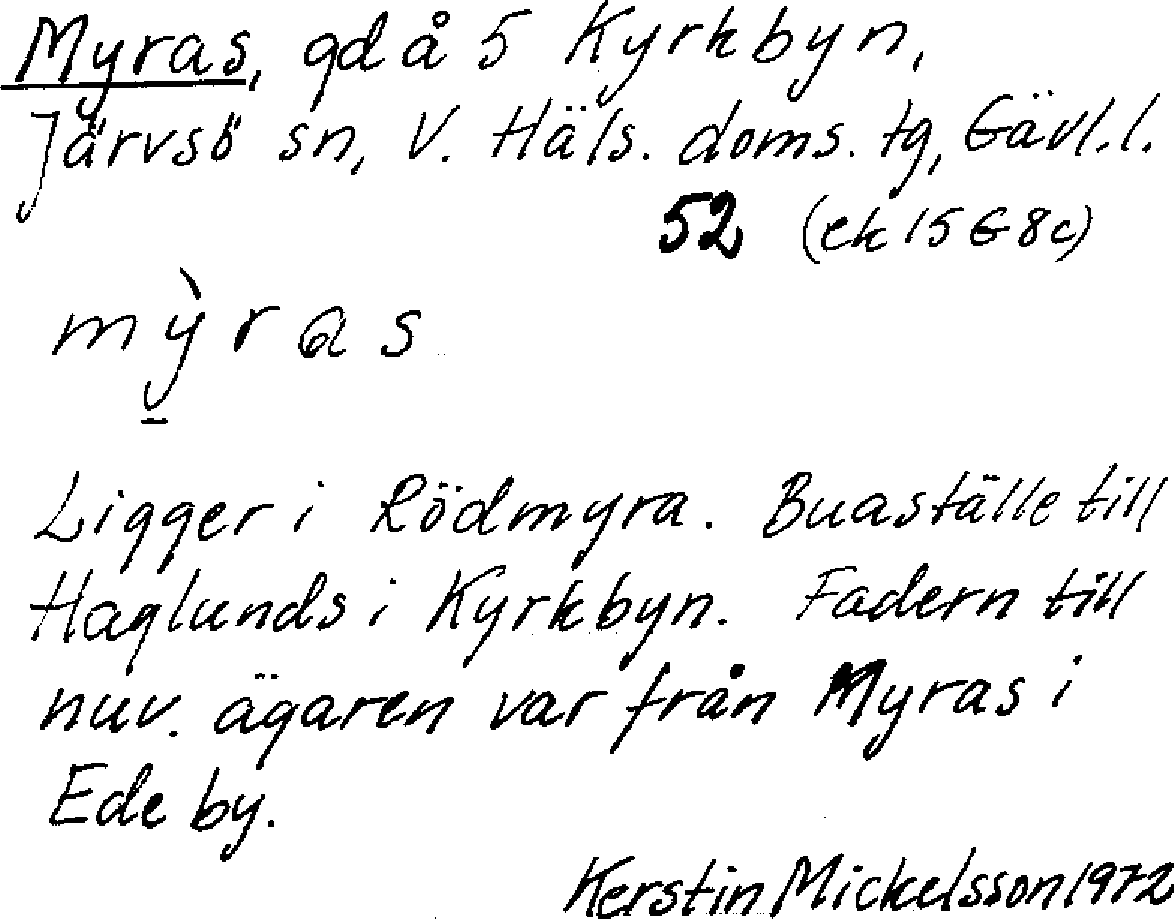 Myras, gd å 5 Kyrkbyn,
Järvsö sn, V. Häls. doms. tg, Gävl. l.
52 (ek 15 G 8c)
mỳ̱ras
Ligger i Rödmyra. Buaställe till
Haglunds i Kyrkbyn. Fadern till
nuv. ägaren var från Myras i
Ede by.
Kerstin Mickelsson 1972